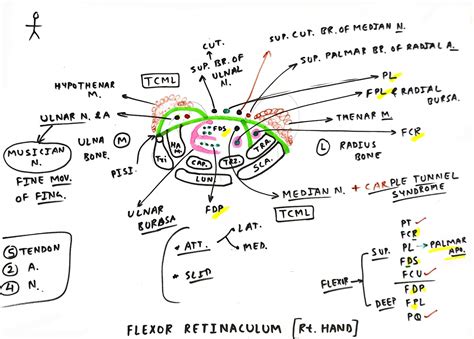 CUT.
SUP. BR. OF
ULNAL
N.
SUP. CUT. BR. OF MEDIAN N.
SUP. PALMAR BR. OF RADIAL A.
HYPOTHENAR
M.
TCML
PL
FPL & RADIAL
BURSA.
ULNAR N. & A
THENAR M.
FCR
MUSICIAN
N.
FINE MOV.
OF FING.
ULNA
BONE.
M
PISI.
FDS
HA
M.
Tri
CAP.
TRZ.
TRA.
SCA.
LUN
L
RADIUS
BONE
ULNAR
BURASA
FDP
MEDIAN N. + CARPLE TUNNEL
SYNDROME
TCML
5 TENDON
2 A.
4 N.
* ATT.
LAT.
MED.
* SLID
FLEXIR
SUP.
DEEP
PT ✓
FCR
PL → PALMAR
APO.
FDS
FCU ✓
FDP
FPL
PQ ✓
FLEXOR RETINACULUM [Rt. HAND]